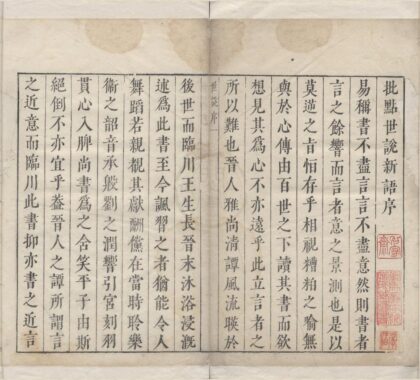 批點世說新語序
易稱書不盡言言不盡意然則書者
言之餘響而言者意之景測也是以
莫逆之旨恒存乎相視糟粕之喻無
與於心傳由百世之下讀其書而欲
想見其爲心不亦遠乎此立言之者
所以難也晉人雅尚清譚風流暎於
後世而臨川王生長晉末沐浴浸溉
述爲此書至今諷習之者猶能令人
舞蹈若親覩其獻酬儻在當時聆樂
衞之韶音承殷劉之潤響引宮刻羽
貫心入脾尚書爲之含笑平子由斯
絕倒不亦宜乎蓋晉人之譚所謂言
之近意而臨川此書抑亦書之近言